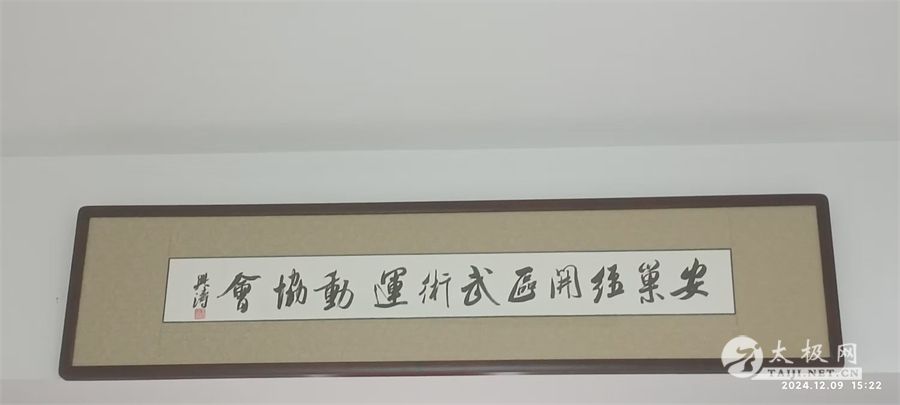 安巢经開區武術運動協會
興濤
太极网
TAIJI.NET.CN
2024.12.09 15:22